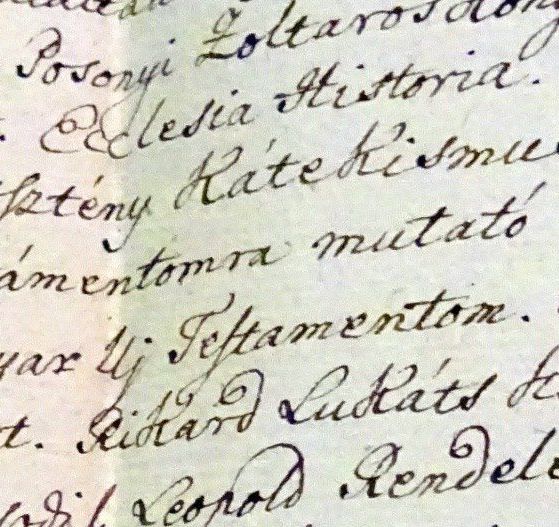 Posonyi Zoltaros Köny
Ecclesia Historia.
sztény Kátekismu
ámentomra mutató
yar Uj Testamentom.
t. Rikard Lukáts
Leopold Rendele